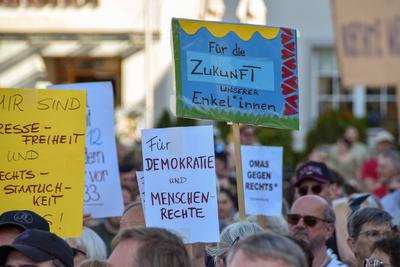 Für die
ZUKUNFT
UNSERER
Enkel*innen
MIR SIND
ESSE-
FREIHEIT
UND
CHTS-
STAATLICH-
KEIT
Für
DEMOKRATIE
UND
MENSCHEN-
RECHTE
OMAS
GEGEN
RECHTS*
33